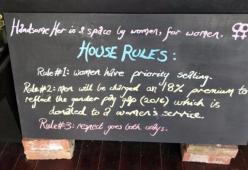 Handsome Her is a space by women, for women. ♀♀
HOUSE RULES:
Rule #1: women have priority seating.
Rule #2: men will be charged an 18% premium to
reflect the gender pay gap (2016) which is
donated to a women's service.
Rule #3: respect goes both ways.